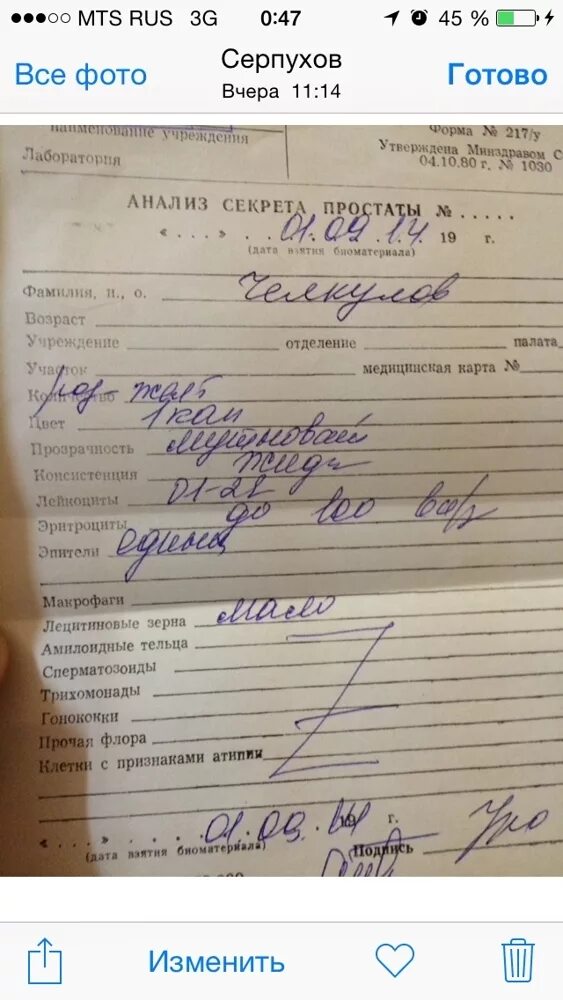 MTS RUS 3G 0:47 45 %
Все фото Серпухов Готово
Вчера 11:14
наименование учреждения
Форма № 217/у
Лаборатория
Утверждена Минздравом С
04.10.80 г. № 1030
АНАЛИЗ СЕКРЕТА ПРОСТАТЫ № . . . . .
« . . . . » . . 01.09.14 19 г.
(дата взятия биоматериала)
Фамилия, и., о. Челкулов
Возраст
Учреждение отделение палата
Участок медицинская карта №
Количество
Цвет 1 кап
Прозрачность мутноват
Консистенция жидк
Лейкоциты
Эритроциты до 100 в
Эпители единиц
Макрофаги
Лецитиновые зерна мало
Амилоидные тельца
Сперматозоиды
Трихомонады
Гонококки
Прочая флора
Клетки с признаками атипии
« . . . . » . . . . 01.09.14 19 г.
(дата взятия биоматериала) Подпись Уро
Изменить